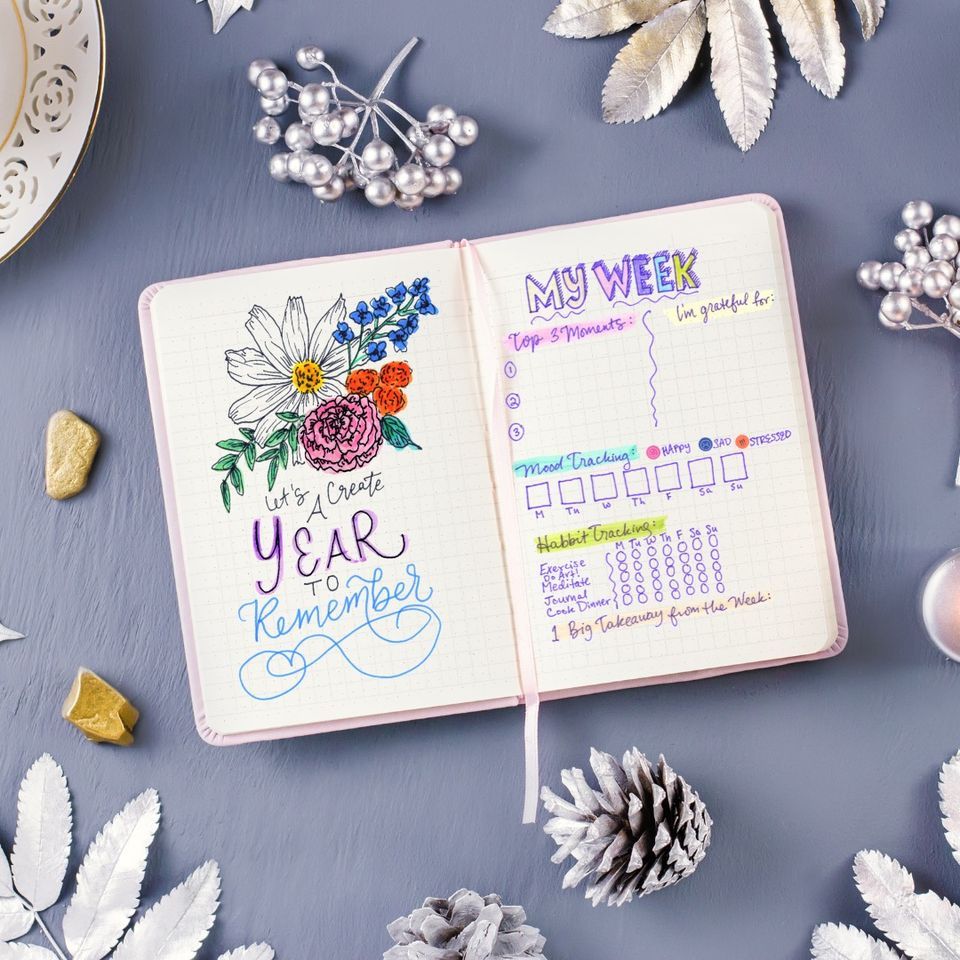 Let's
A Create
YEAR
TO
Remember
MY WEEK
Top 3 Moments:
1
2
3
I'm grateful for:
Mood Tracking: HAPPY SAD STRESSED
M Tu W Th F Sa Su
Habbit Tracking:
M Tu W Th F Sa Su
Exercise
Do Art!
Meditate
Journal
Cook Dinner
1 Big Takeaway from the Week: